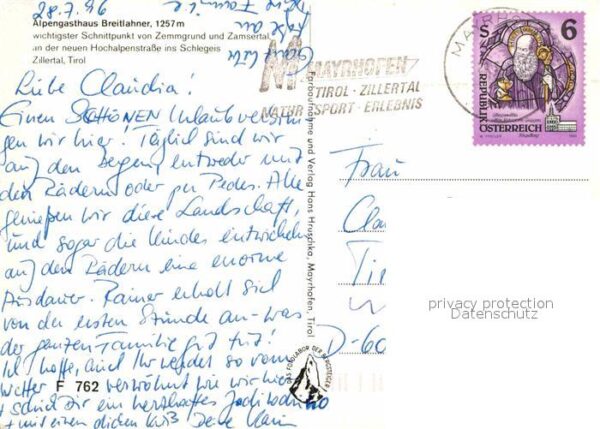 28.7.96
Alpengasthaus Breitlahner, 1257 m
wichtigster Schnittpunkt von Zemmgrund und Zamsertal
an der neuen Hochalpenstraße ins Schlegeis
Zillertal, Tirol
Liebe Claudia!
Einen SCHÖNEN Urlaub verbrin-
gen wir hier! Täglich sind wir
auf den Bergen entweder mit
den Rädern oder per Pedes. Alle
genießen wir diese Landschaft,
und sogar die Kinder entwickeln
auf den Rädern eine enorme
Ausdauer. Rainer erholt sich
von der ersten Stunde an - was
der ganzen Familie gut tut!
Ich hoffe, auch Ihr werdet so vom
Wetter verwöhnt wie wir hier
+ schickt Dir ein herzhaftes
+ mit einem dicken Kuß Deine
F 762
MAYRHOFEN
TIROL · ZILLERTAL
NATUR SPORT · ERLEBNIS
MAYRH
S 6
REPUBLIK
ÖSTERREICH
Farbaufnahme und Verlag Hans Hruschka, Mayrhofen, Tirol
DAS FOTOLABOR DER BERGSTEIGER
Frau
Cla
D-60
privacy protection
DELCAMPE.NET